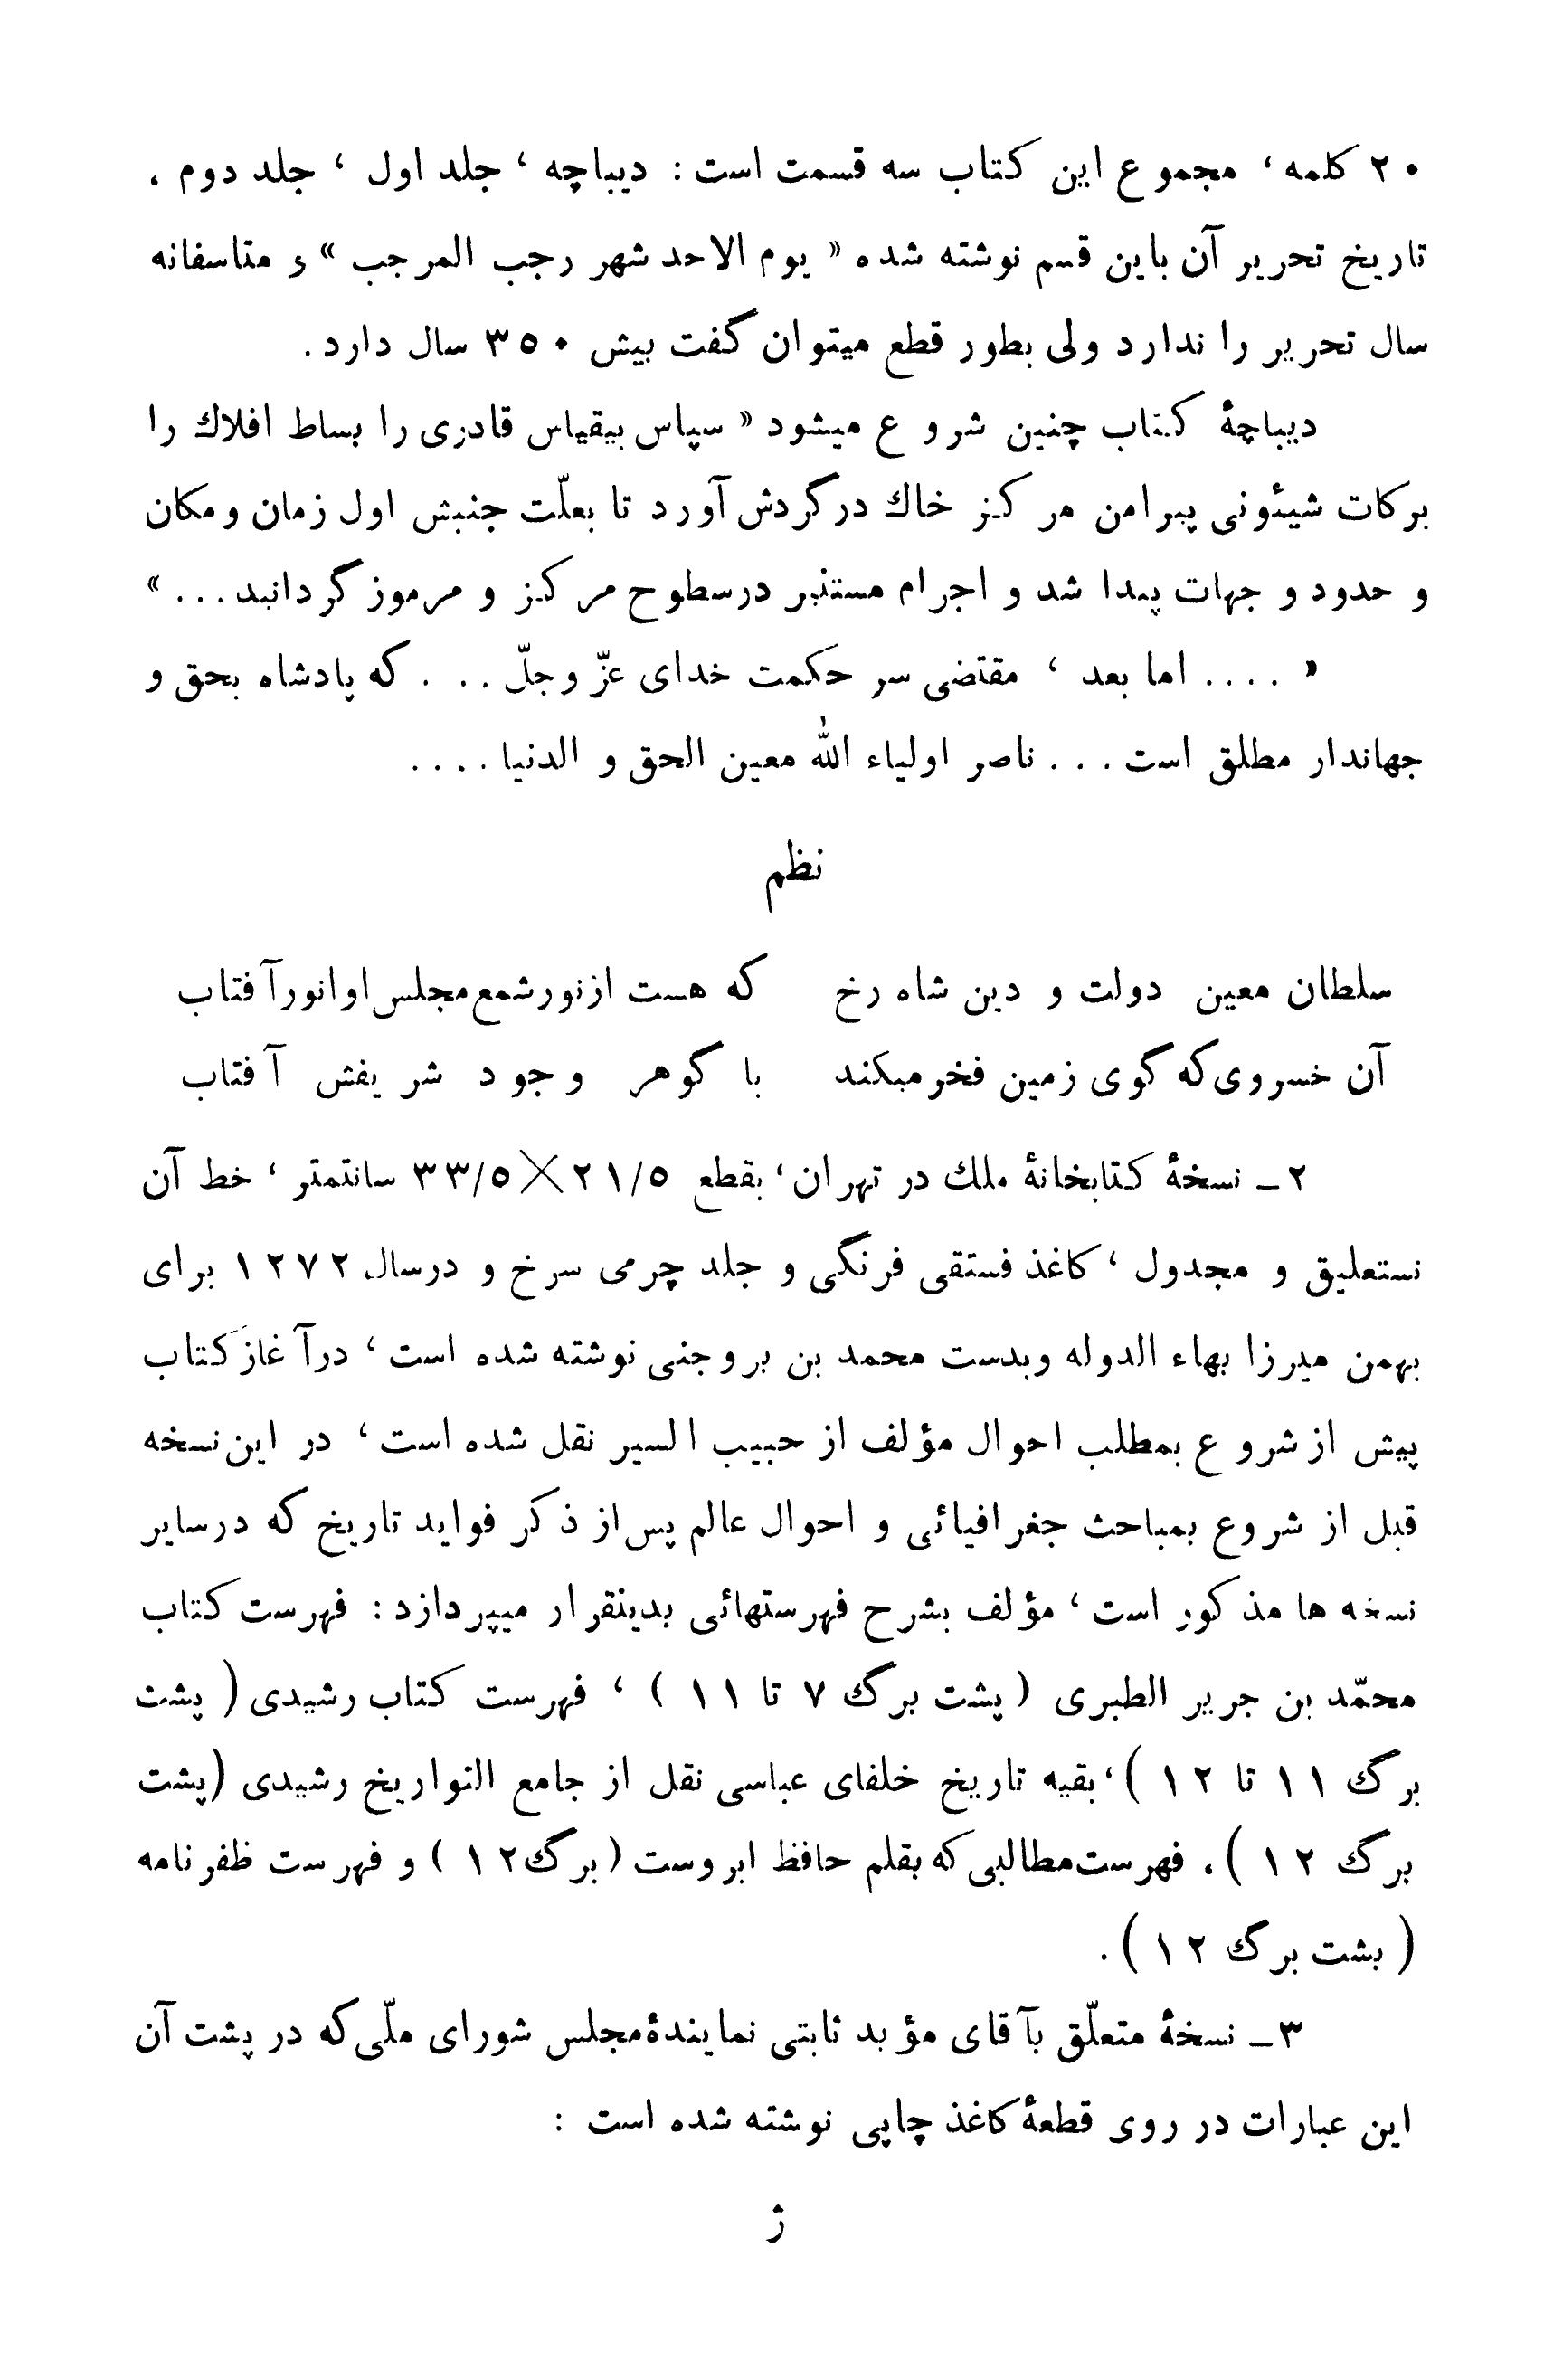 ۲۰ کلمه ، مجموع این کتاب سه قسمت است : دیباچه ، جلد اول ، جلد دوم .
تاریخ تحریر آن باین قسم نوشته شده « یوم الاحد شهر رجب المرجب » و متاسفانه
سال تحریر را ندارد ولی بطور قطع میتوان گفت بیش ۳۵۰ سال دارد .
دیباچهٔ کتاب چنین شروع میشود « سپاس بیقیاس قادری را بساط افلاك را
برکات شیئونی پیرامن مرکز خاك درگردش آورد تا بعلّت جنبش اول زمان ومکان
و حدود و جهات پیدا شد و اجرام مستنیر درسطوح مرکز و مرموز گردانید ... »
« .... اما بعد ، مقتضی سر حکمت خدای عزّ وجلّ ... . که پادشاه بحق و
جهاندار مطلق است ... ناصر اولیاء الله معین الحق و الدنیا ....
نظم
سلطان معین دولت و دین شاه رخ که هست ازنورشمع مجلس اوانورآفتاب
آن خسروی که گوی زمین فخرمیکند با گوهر وجود شریفش آفتاب
۲ـ نسخهٔ کتابخانهٔ ملك در تهران ، بقطع ۲۱/۵×۳۳/۵ سانتمتر ، خط آن
نستعلیق و مجدول ، کاغذ فستقی فرنگی و جلد چرمی سرخ و درسال ۱۲۷۲ برای
بهمن میرزا بهاء الدوله وبدست محمد بن بروجنی نوشته شده است ، درآغازکتاب
پیش از شروع بمطلب احوال مؤلف از حبیب السیر نقل شده است ، در این نسخه
قبل از شروع بمباحث جغرافیائی و احوال عالم پس از ذکر فواید تاریخ که درسایر
نسخه ها مذکور است ، مؤلف بشرح فهرستهائی بدینقرار میپردازد : فهرست کتاب
محمّد بن جریر الطبری ( پشت برگ ۷ تا ۱۱ ) ، فهرست کتاب رشیدی ( پشت
برگ ۱۱ تا ۱۲ ) ، بقیه تاریخ خلفای عباسی نقل از جامع التواریخ رشیدی (پشت
برگ ۱۲ ) . فهرست مطالبی که بقلم حافظ ابروست ( برگ ۱۲ ) و فهرست ظفرنامه
( پشت برگ ۱۲ ) .
۳ـ نسخهٔ متعلّق بآقای مؤید ثابتی نمایندهٔ مجلس شورای ملّی که در پشت آن
این عبارات در روی قطعهٔ کاغذ چاپی نوشته شده است :
ژ